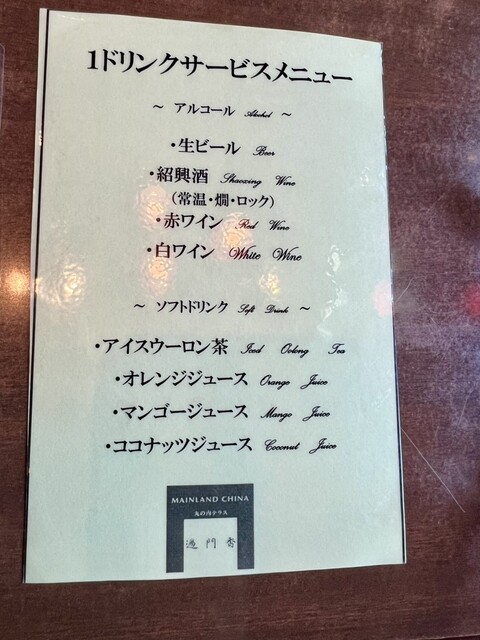 1ドリンクサービスメニュー
～ アルコール Alcohol ～
・生ビール Beer
・紹興酒 Shaoxing Wine
(常温・燗・ロック)
・赤ワイン Red Wine
・白ワイン White Wine
～ ソフトドリンク Soft Drink ～
・アイスウーロン茶 Iced Oolong Tea
・オレンジジュース Orange Juice
・マンゴージュース Mango Juice
・ココナッツジュース Coconut Juice
MAINLAND CHINA
丸の内テラス
過門香